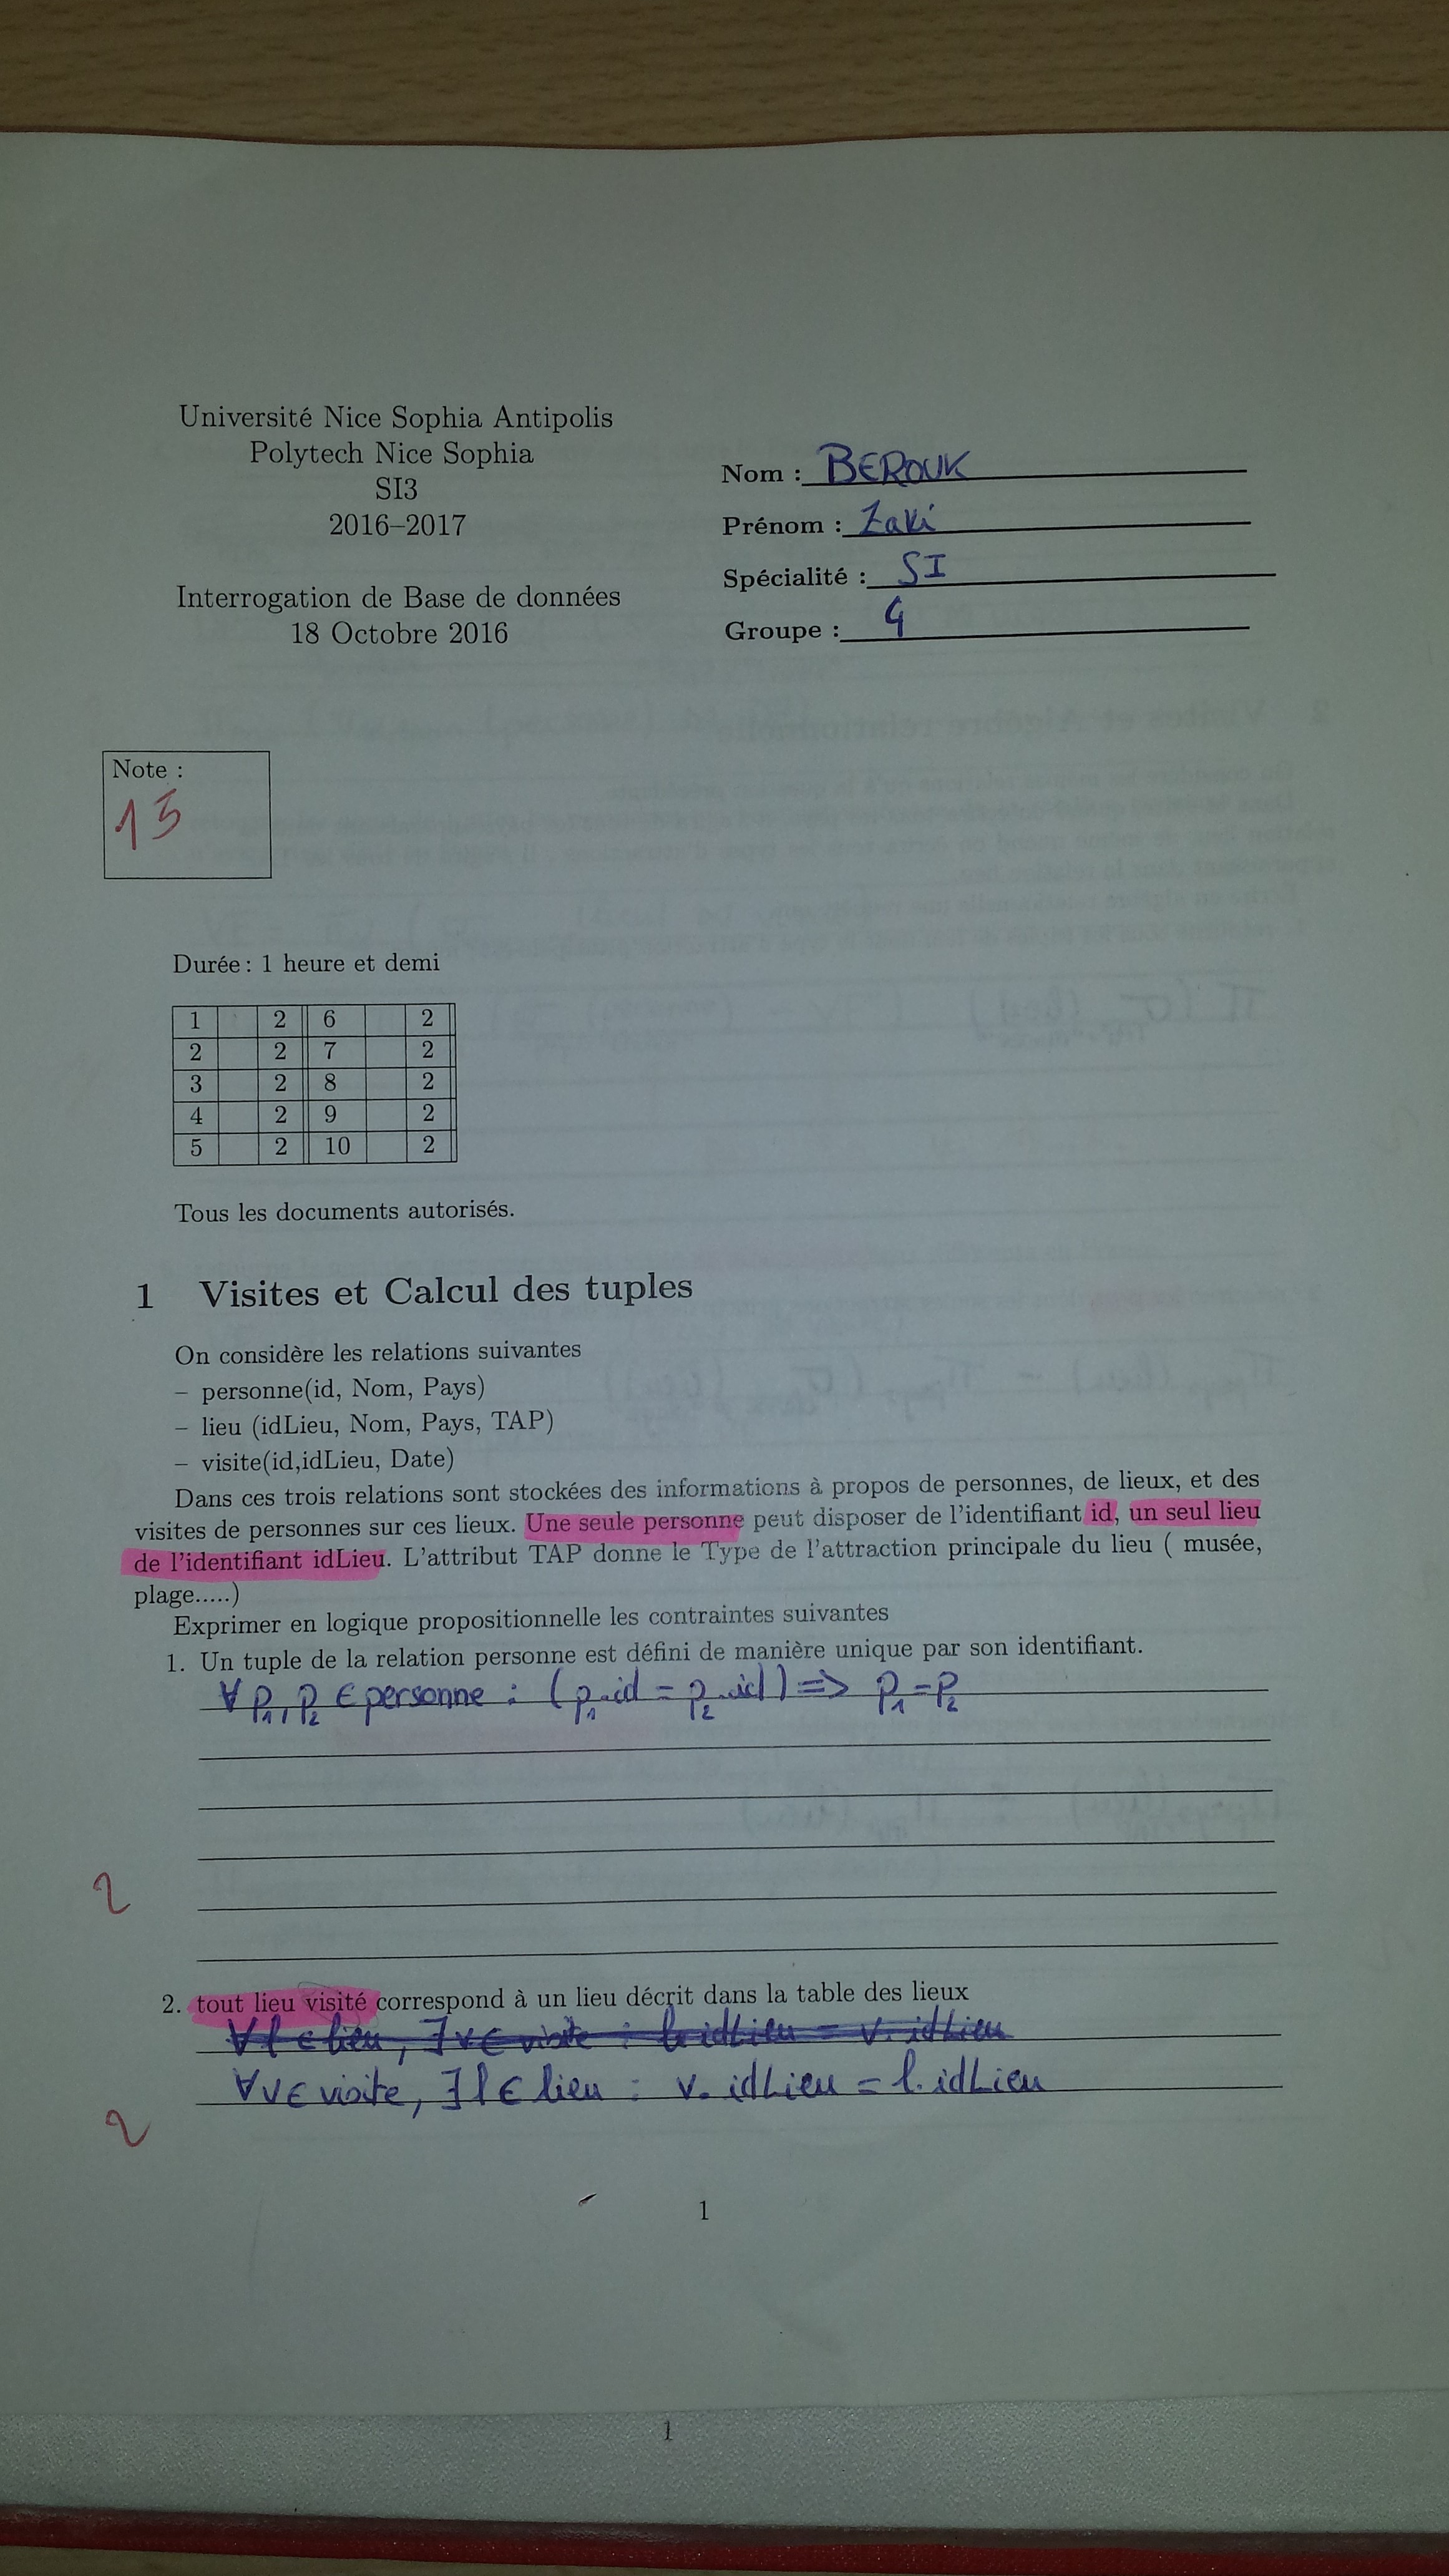 Université Nice Sophia Antipolis
Polytech Nice Sophia
SI3
2016–2017
Interrogation de Base de données
18 Octobre 2016
Nom : BEROUK
Prénom : Zaki
Spécialité : SI
Groupe : 4
Note :
15
Durée : 1 heure et demi
1 2 6 2
2 2 7 2
3 2 8 2
4 2 9 2
5 2 10 2
Tous les documents autorisés.
1 Visites et Calcul des tuples
On considère les relations suivantes
– personne(id, Nom, Pays)
– lieu (idLieu, Nom, Pays, TAP)
– visite(id,idLieu, Date)
Dans ces trois relations sont stockées des informations à propos de personnes, de lieux, et des
visites de personnes sur ces lieux. Une seule personne peut disposer de l'identifiant id, un seul lieu
de l'identifiant idLieu. L'attribut TAP donne le Type de l'attraction principale du lieu ( musée,
plage.....)
Exprimer en logique propositionnelle les contraintes suivantes
1. Un tuple de la relation personne est défini de manière unique par son identifiant.
∀ p₁, p₂ ∈ personne : (p₁.id = p₂.id) => p₁ = p₂
2
2. tout lieu visité correspond à un lieu décrit dans la table des lieux
∀ l ∈ lieu, ∃ v ∈ visite : l.idLieu = v.idLieu
∀ v ∈ visite, ∃ l ∈ lieu : v.idLieu = l.idLieu
2
1
1